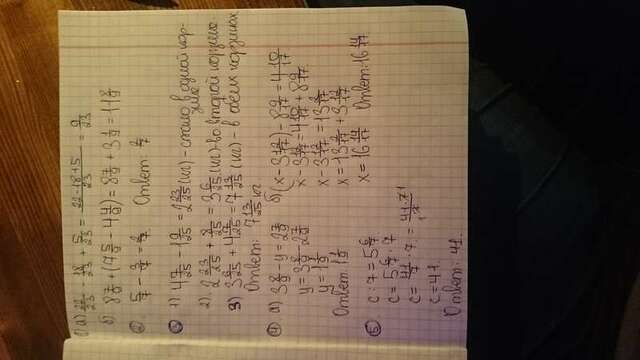 1) а) 22/23 - 18/23 + 5/23 = (22 - 18 + 5)/23 = 9/23
б) 8 7/9 + (7 5/9 - 4 4/9) = 8 7/9 + 3 1/9 = 11 8/9
2) 5/7 - 3/7 = 2/7 Ответ:
3) 1) 4 7/25 - 1 9/25 = 2 23/25 (кг) - стало в одной кор-
зине
2) 2 23/25 + 8/25 = 3 6/25 (кг) во второй корзине
3) 3 6/25 + 4 7/25 = 7 13/25 (кг) - в обеих корзинах
Ответ: 7 13/25 кг
4) а) 3 8/9 - y = 2 7/9
y = 3 8/9 - 2 7/9
y = 1 1/9
Ответ: 1 1/9
б) (x - 3 12/17) - 8 9/17 = 4 10/17
x - 3 12/17 = 4 10/17 + 8 9/17
x - 3 12/17 = 13 2/17
x = 13 2/17 + 3 12/17
x = 16 14/17 Ответ: 16 14/17
5) c : 7 = 5 6/7
c = 5 6/7 · 7
c = 41/7 · 7 =
c = 41
Ответ: 41.